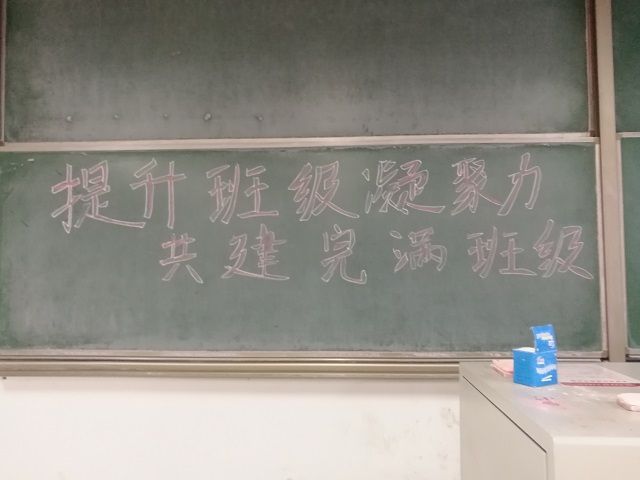 提升班级凝聚力
共建完满班级